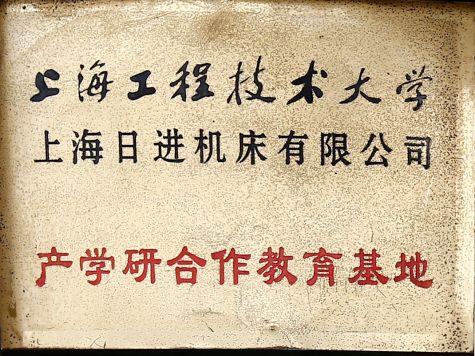 上海工程技术大学
上海日进机床有限公司
产学研合作教育基地